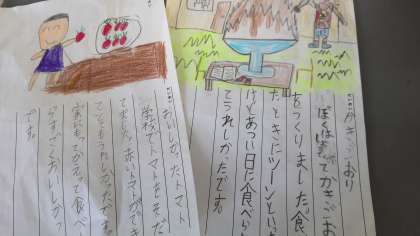 かきごおり
ぼくは でかきごお
をつくりました。食
たときにツーンといた
けどあつい日に食べら
てうれしかったです。
おいしかったトマト
学校でトマトをそだ
赤いトマトができ
てとてもうれしかったです
家にもってかえって食べ
らすごくおいしかっ
です。